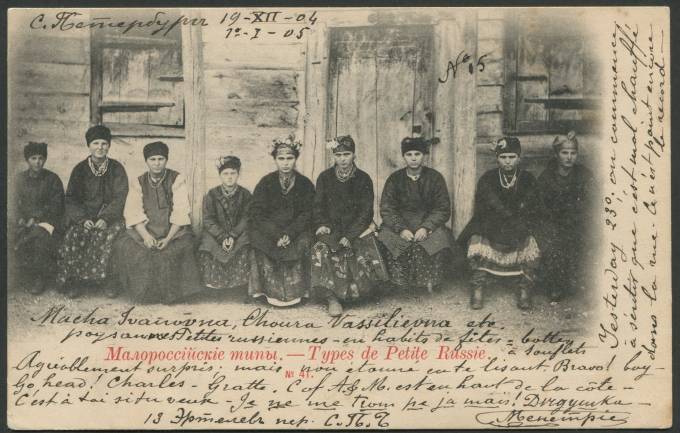 С. Петербургъ 19-XII-04
1º-I-05
No 15
Macha Ivanovna, Choura Vassilievna etc
paysannes Petites russiennes en habits de fêtes = bottes
à soufflets
Малороссійскіе типы. — Types de Petite Russie.
№ 41.
Agréablement surpris, mais étonné en te lisant Bravo! boy
Go head! Charles - Gratte. C of A & M. est en haut de la côte -
C'est à toi si tu veux - Je ne me trompe jamais! Dugushka -
13 Эртелевъ пер. С.П.Б
Yesterday 23º. on commence
à sentir que c'est mal chauffé
dans la rue - ce n'est point encore
le record -